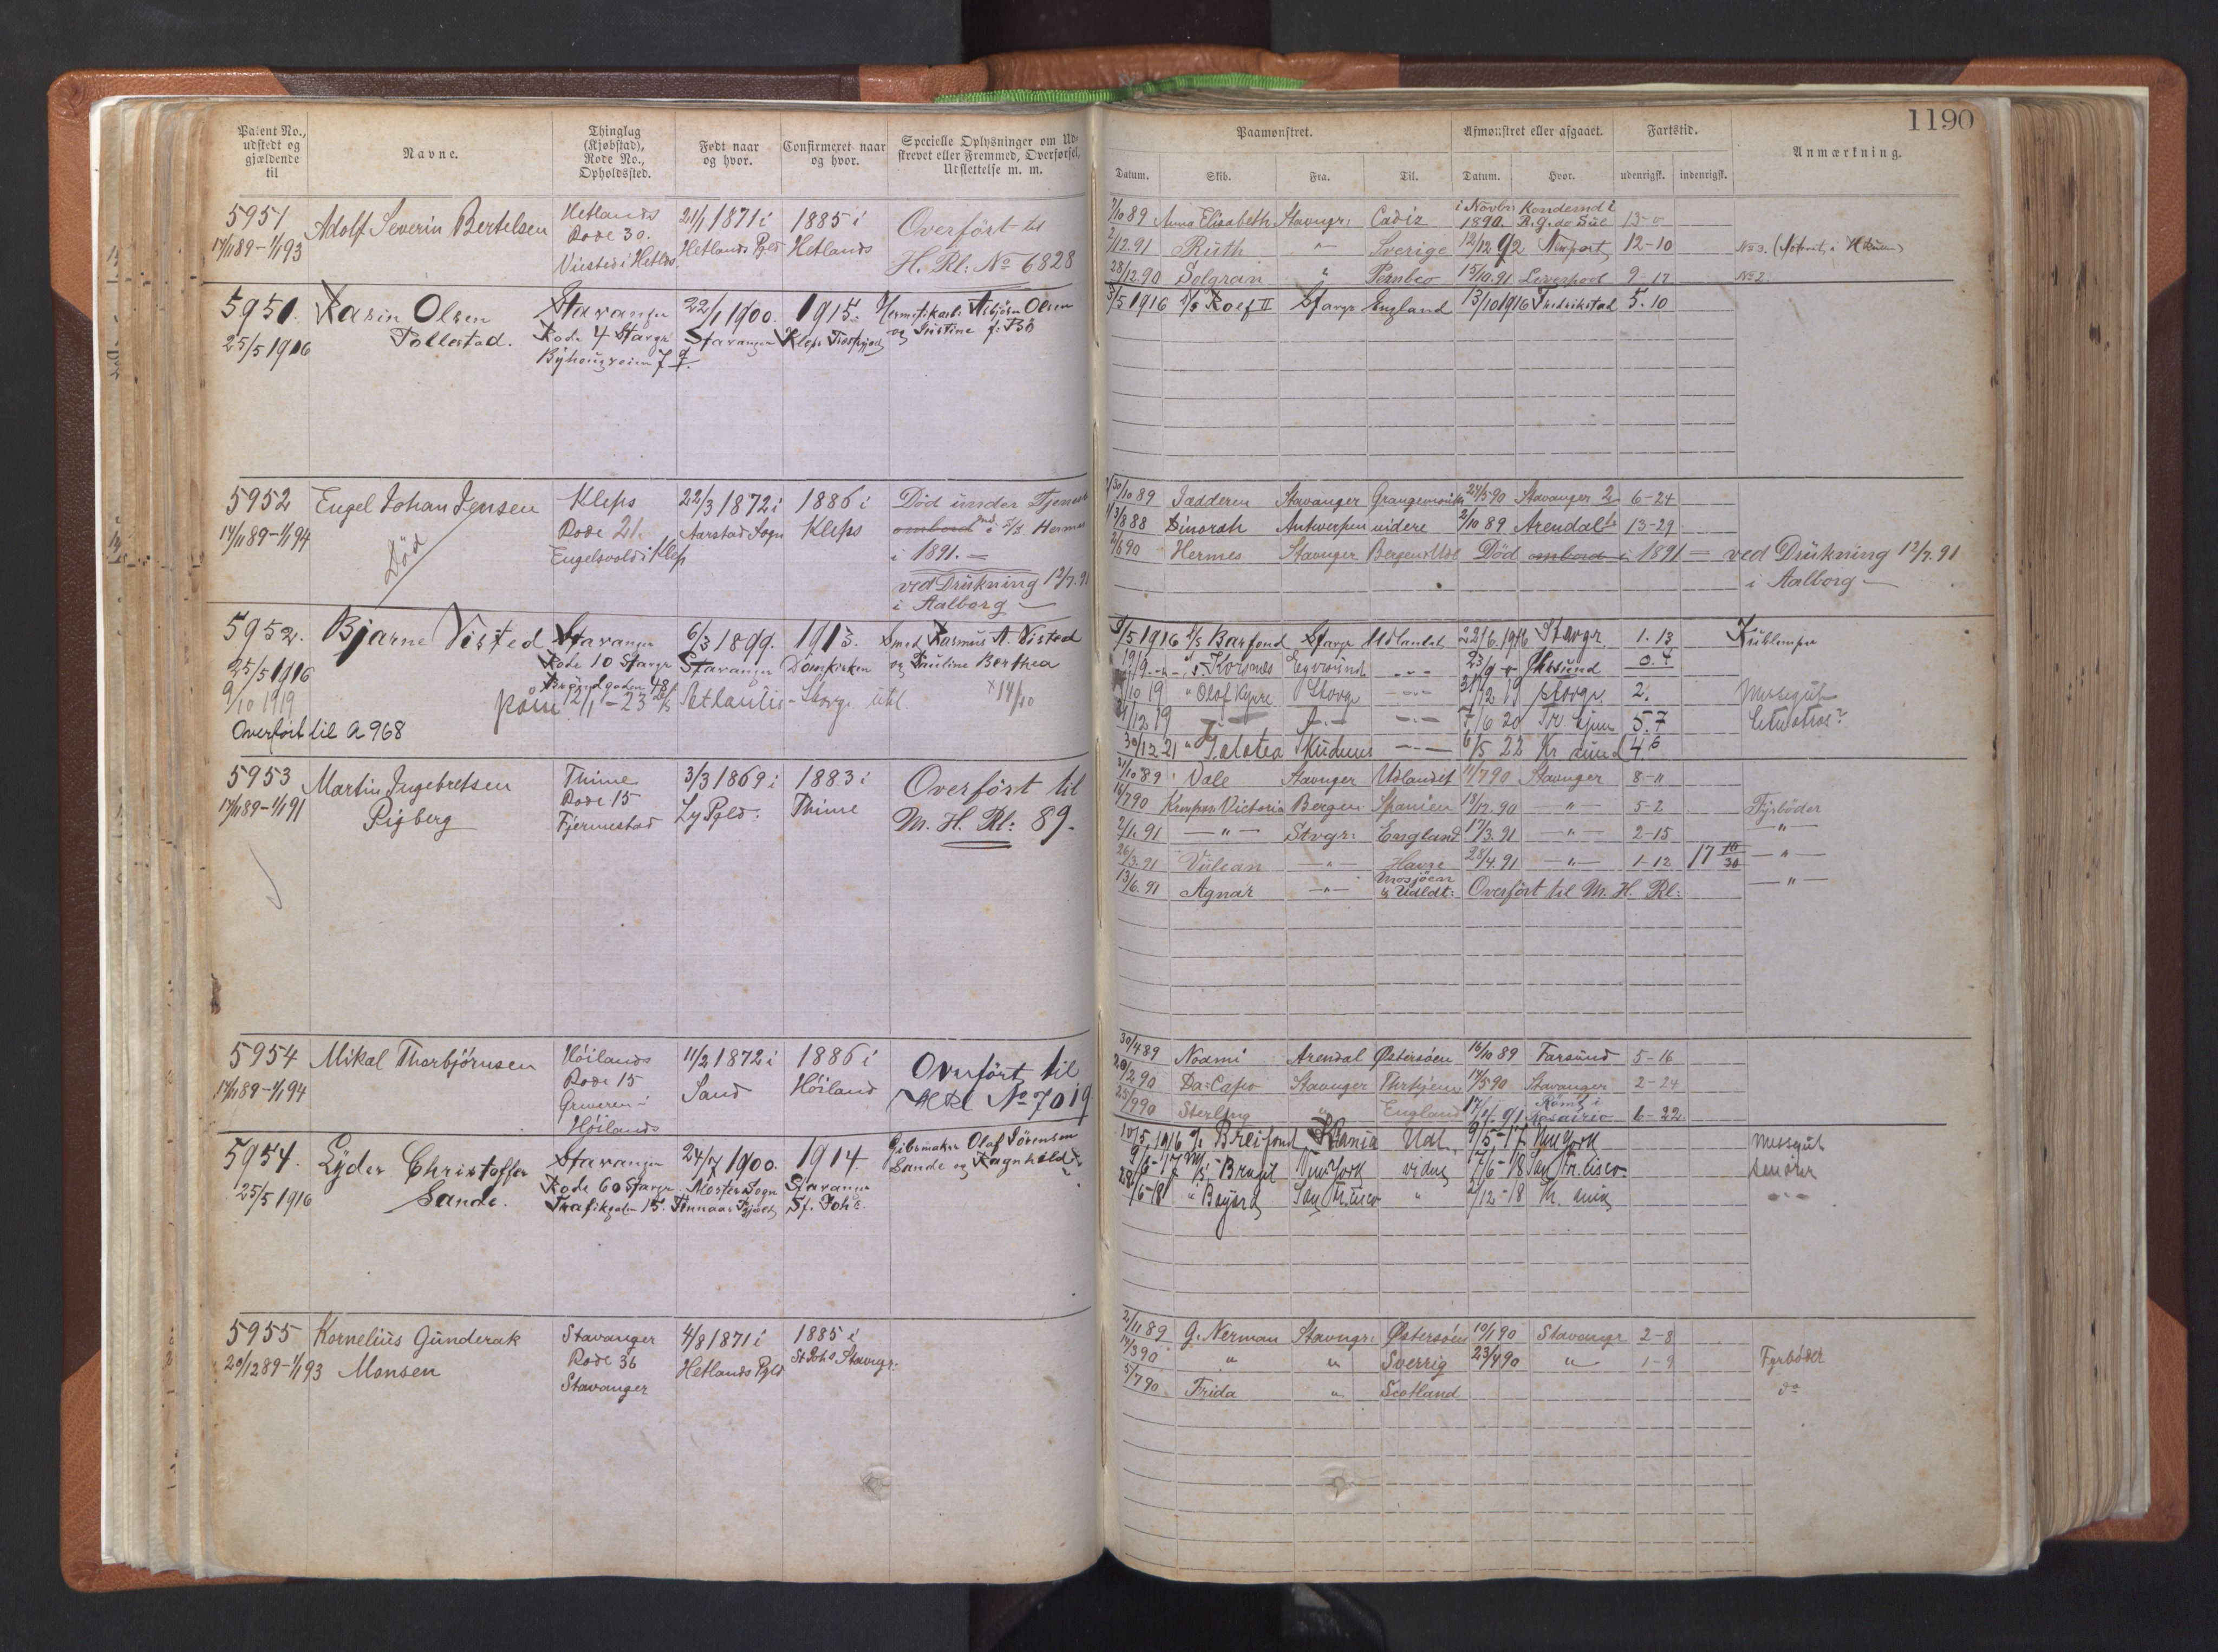 1190
Patent No., udstedt og gjældende til
Navne.
Thinglag (Kjøbstad), Rode No., Opholdssted.
Født naar og hvor.
Confirmeret naar og hvor.
Specielle Oplysninger om Udskrevet eller Fremmed, Overførsel, Udslettelse m. m.
Paamønstret.
Afmønstret eller afgaaet.
Fartstid.
Anmærkning.
Datum. Skib. Fra. Til. Datum. Hvor. udenrigsk. indenrigsk.
5951 Adolf Severin Bertelsen Hetlands 21/1 1871 i 1885 i Overført til
14/11 89-1/1 93 Rode 30. Hetlands Pgld Hetlands H. Rl: No 6828
7/10 89 Anna Elisabeth Stavngr: Cadiz i Novbr 1890. Kondemd i R. G. do Sul 13-0
2/12.91 Ruth -"- Sverige 12/12 92 Newport 12-10
28/12.90 Solgran " Pernbco 15/10.91 Liverpool 9-17 No 2.
5951. Karin Olsen Stavanger 22/1 1900. 1915.
25/5 1916 Tollestad. Rode 4 Stavgr Stavanger Klep
3/5 1916 S/S Rolf II Stavgr England 13/10 1916 Fredrikstad 5.10
5952 Engel Johan Jensen Kleps 22/3 1872 i 1886 i Død under Tjeneste
14/11 89-1/1 94 Rode 21. Aarstad Sogn Kleps ombord i S/S Hermes
Død Engelsvold i Klep i 1891.=
ved Drukning 12/7.91
i Aalborg
30/10 89 Jædderen Stavanger Grangemouth 24/5 90 Stavanger 6-24
3/8 88 Dinorah Antwerpen videre 2/10 89 Arendal 13-29
2/6 90 Hermes Stavnger Bergen & Udl Død ombord i 1891 = ved Drukning 12/7.91
i Aalborg
5952. Bjarne Visted Stavanger 6/3 1899. 1913. Smed Rasmus A. Visted
25/5 1916 Rode 10 Stavgr Stavanger Domkirken og Pauline Berthea
9/10 1919
Overført til A 968
5/5 1916 S/S Barfond Stavgr Udlandet 22/6.1916 Stavgr. 1.13
Egersund 23/9 0.4
10 19 " Olaf Kyrre Stavgr 31/12 19 Stavgr. 2. Messegut
7/6 20 5.7
30/12 21 " Galatea 6/5 22 Kr. sund 4.6
5953 Martin Ingebretsen Thime 3/3 1869 i 1883 i Overført til
14/11 89-1/1 91 Rigberg Rode 15 Ly Pgld: Thime M. H. Rl: 89.
Fjermestad
31/10 89 Vale Stavnger Udlandet 11/7 90 Stavnger 8-"
14/7 90 Kronprs Victoria Bergen Spanien 18/12.90 -"- 5-2 Fyrbøder
2/1. 91 -"- Stvgr: England 17/3.91 -"- 2-15 -"-
26/3.91 Vulcan -"- Havre 28/4.91 -"- 1-12 17 10/30 -"-
13/6.91 Agnar -"- Mosjøen & Udldt: Overført til M. H. Rl: -"-
5954 Mikal Thorbjørnsen Høilands 11/2 1872 i 1886 i Overført til
14/11 89-1/1 94 Rode 15 Sand Høiland No 7019
Høilands
30/4 89 Noomi Arendal Østersøen 16/10 89 Farsund 5-16
20/2 90 Da-Capo Stavnger Thrhjem 14/5 90 Stavanger 2-24
25/9 90 Sterling " England 17/4.91 Rømt i Rosairio 6-22
5954. Lyder Christoffer Stavanger 24/7 1900. 1914. Gibsmaker Olaf Sørensen
25/5 1916 Sande. Rode 60 Stavgr Moster Sogn Stavanger Sande og Ragnhild
Trafikgaden 15. St. Joh:
10/5 1916 S/S Breifond Udl. 9/5-17 New York Messegut
Brazil New York videre 17/6-18 San Fr. cisco
San Fr. cisco " 2/12-18
5955 Kornelius Gunderak Stavanger 4/8 1871 i 1885 i
20/12 89-1/1 93 Monsen Rode 36 Hetlands Pgld St Johs Stavngr:
Stavanger
2/11 89 G. Nerman Stavngr: Østersøen 10/1 90 Stavangr 2-8
14/3 90 " " Sverrig 23/4 90 " 1-9 Fyrbøder
5/7 90 Frida " Scotland do